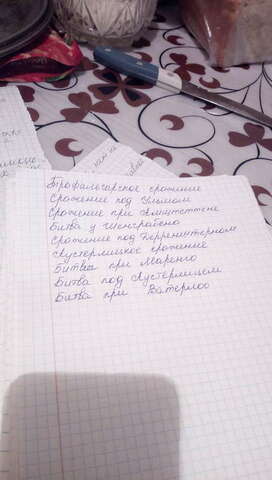 Трафальгарское сражение
Сражение под Ульмом
Сражение при Амштеттене
Битва у Шенграбена
Сражение под Дюрренштейном
Аустерлицкое сражение
Битва при Маренго
Битва под Аустерлицем
Битва при Ватерлоо